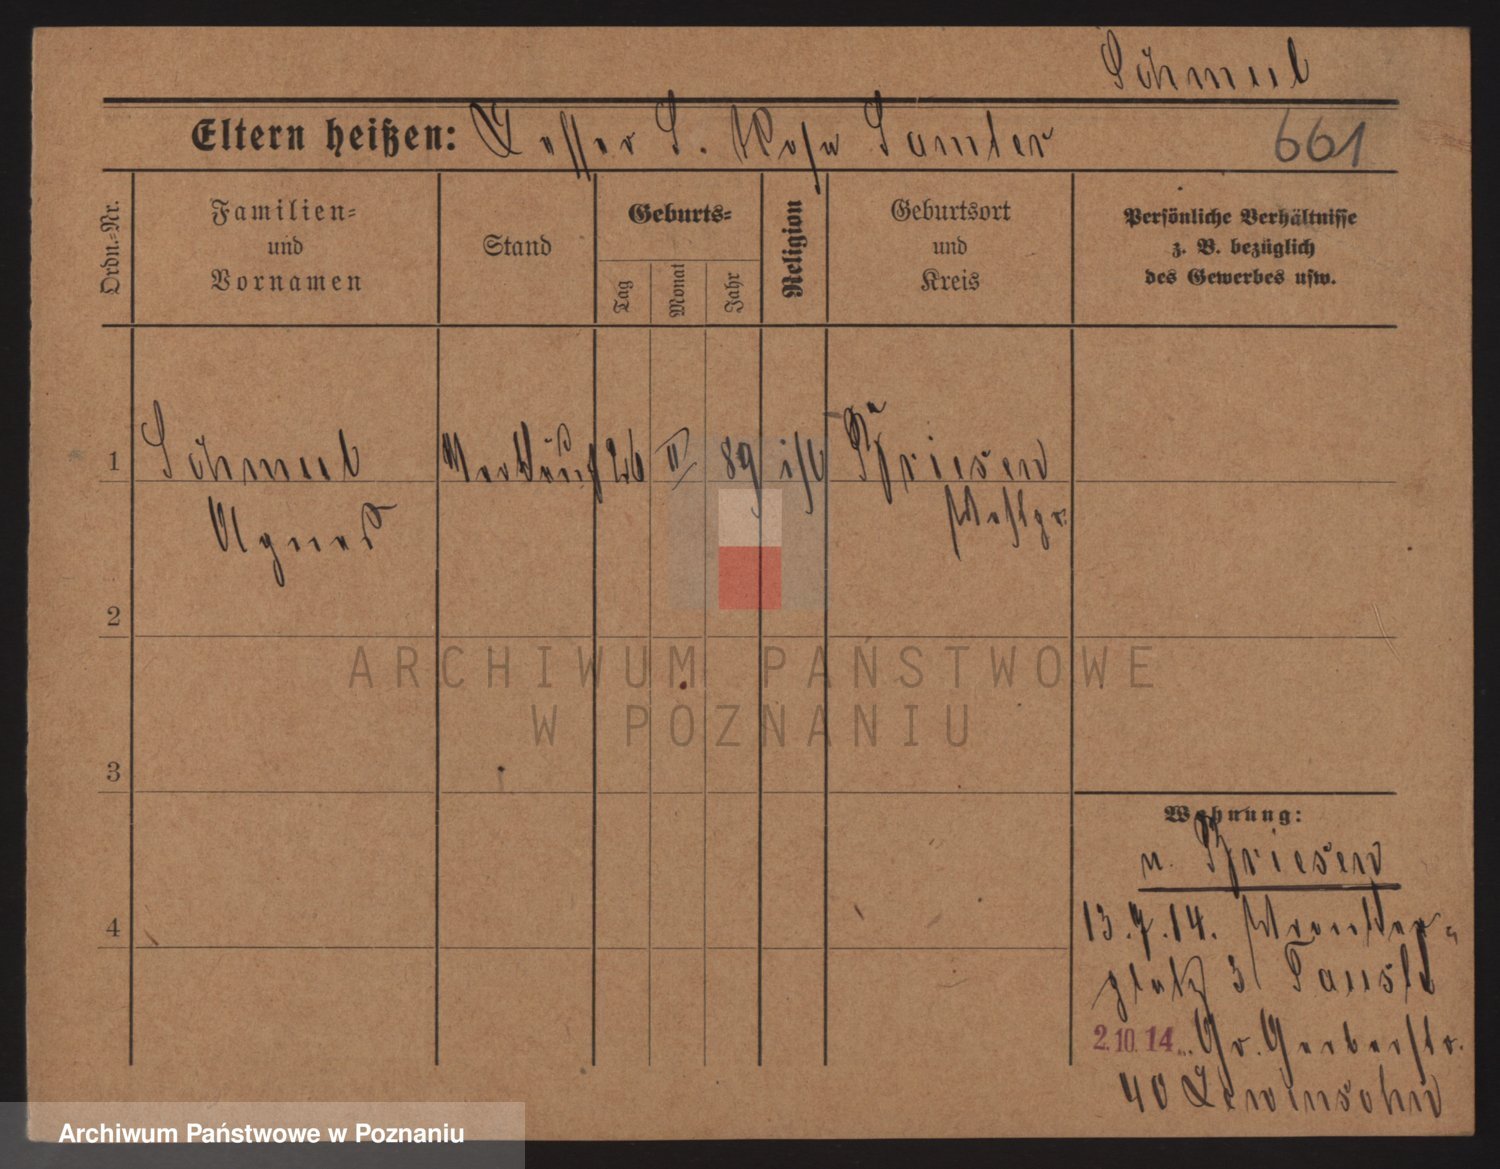 Schmul
Eltern heißen: Lesser S. Rosa Samter 661
Ordn.-Nr.
Familien-
und
Vornamen
Stand
Geburts-
Tag
Monat
Jahr
Religion
Geburtsort
und
Kreis
Persönliche Verhältnisse
z. B. bezüglich
des Gewerbes usw.
1 Schmul Verkäuf 26 II 89 isr Briesen
Agnes Westpr.
2
3
4
Wohnung:
n. Briesen
13.7.14. Wronker-
platz 3
2.10.14. Gr. Gerberstr.
40 Lewinsohn
ARCHIWUM PAŃSTWOWE
W POZNANIU
Archiwum Państwowe w Poznaniu